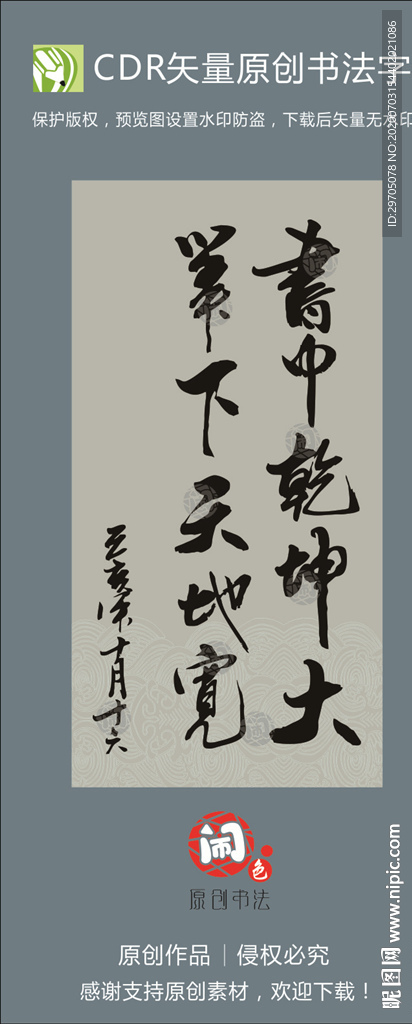 CDR矢量原创书法字
保护版权，预览图设置水印防盗，下载后矢量无水印
書中乾坤大
筆下天地寬
十月十六
闹
色
原创书法
原创作品｜侵权必究
感谢支持原创素材，欢迎下载！
昵图网 www.nipic.com